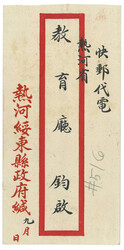 快郵代電
熱河省
教育廳 鈞啟
熱河綏東縣政府緘
九月 日
#516